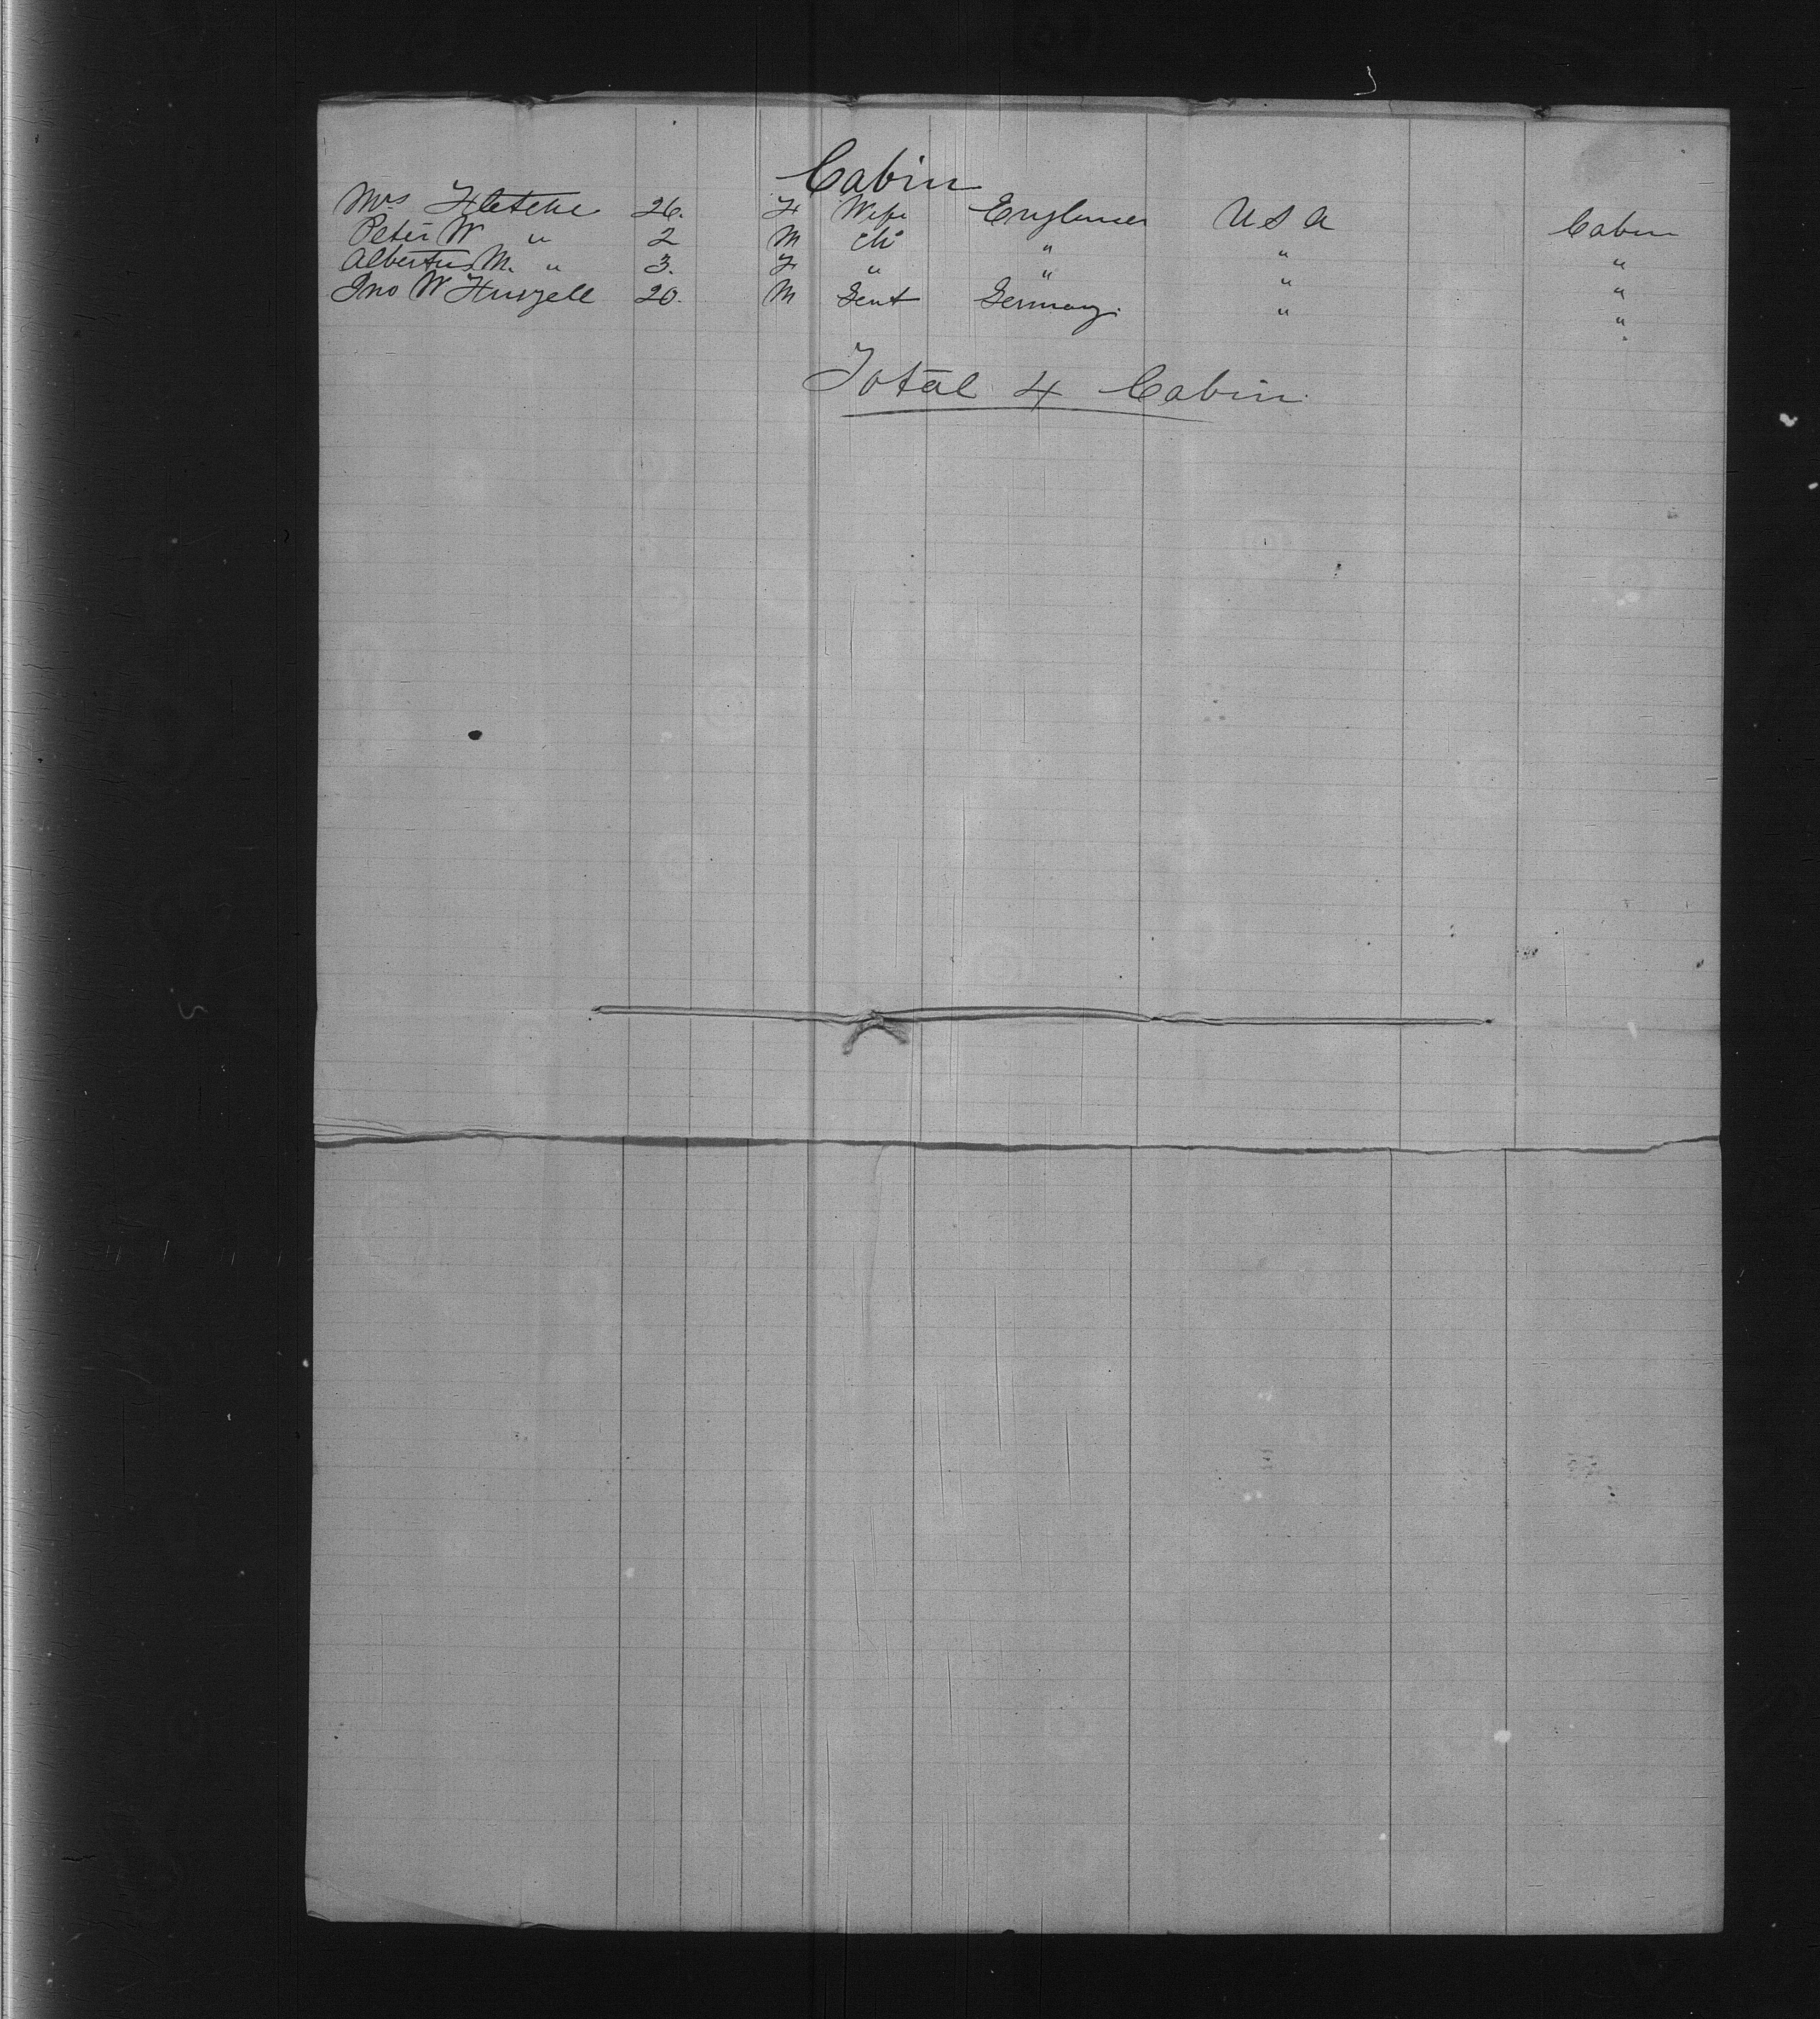 Cabin
Mrs Fletche 26. F Wife England U S A Cabin
Peter W " 2 M Ch " " "
Albertus M. " 3. F " " " "
Jno W 20. M Gent Germany. " "
Total 4 Cabin